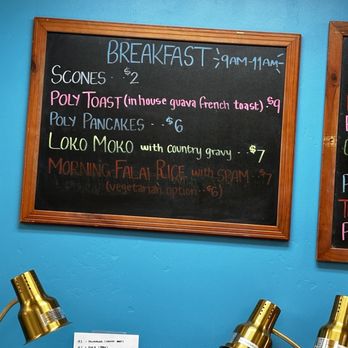 BREAKFAST 9AM-11AM
SCONES . . $2
POLY TOAST (in house guava french toast) . $9
POLY PANCAKES . . $6
LOKO MOKO with country gravy . . $7
MORNING FALAI RICE with SPAM . . $7
(vegetarian option . . $6)